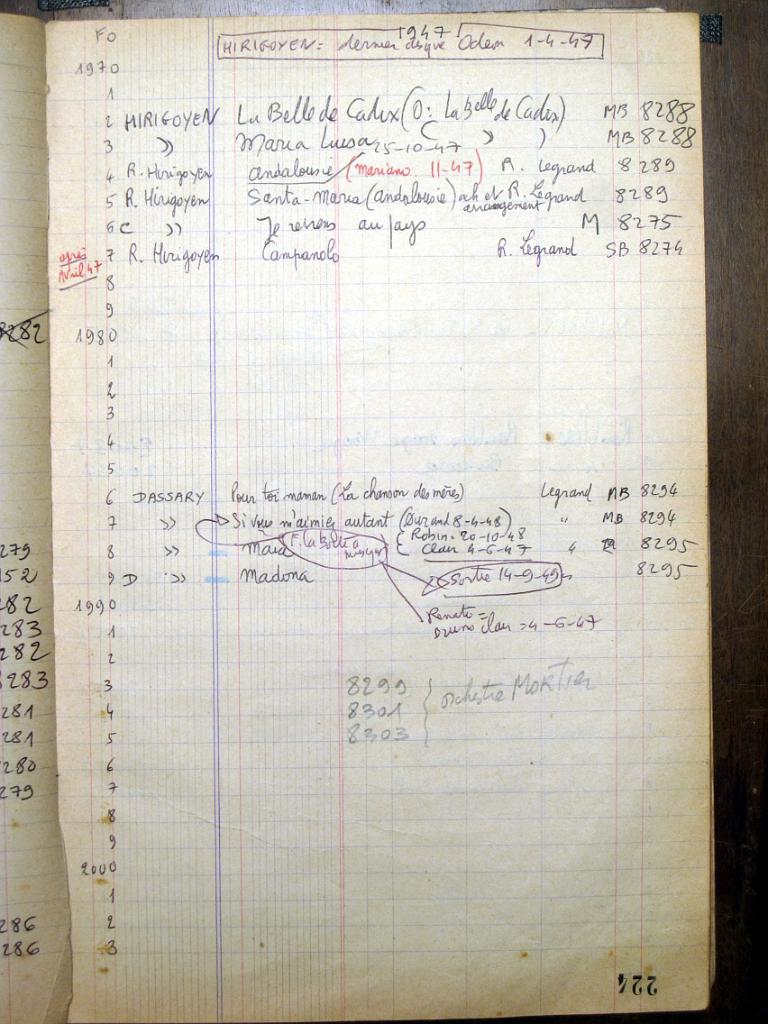 FO 1947
HIRIGOYEN = dernier disque Odeon 1-4-47
1970
1
2 HIRIGOYEN La Belle de Cadix (O: La belle de Cadix) MB 8288
3 " Maria Luisa ( " " ) MB 8288
25-10-47
4 R. Hirigoyen andalousie (Mariano 11-47) R. Legrand 8289
5 R. Hirigoyen Santa-Maria (andalousie) och et R. Legrand 8289
arrangement
6 C " Je reviens au pays M 8275
après Avril 47
7 R. Hirigoyen Campanolo R. Legrand SB 8274
8
9
8282 1980
1
2
3
4
5
6 DASSARY Pour toi maman (La chanson des mères) Legrand MB 8294
7 " Si vous m'aimiez autant (Durand 8-4-48) " MB 8294
F. la boîte à musique
Robin = 20-10-48
279 8 " Maria Clair 4-6-47 " 8295
152 9 D " Madona Sortie 14-9-49 8295
282 1990
Renato =
283 1 Bruno Clair = 4-6-47
282 2
8283 3 8299
281 4 8301 orchestre MORTIER
281 5 8303
280 6
279 7
8
9
2000
1
286 2
286 3
224